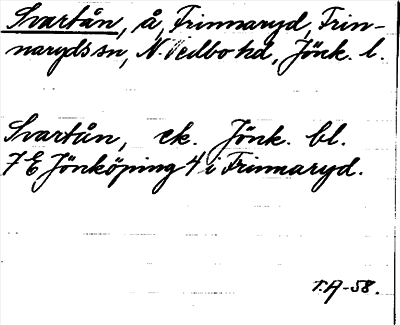 Svartån, å, Frinnaryd, Frin-
naryds sn, N. Vedbo hd, Jönk. l.
Svartån, ek. Jönk. bl.
7 E Jönköping 4 i Frinnaryd.
T.A-58.